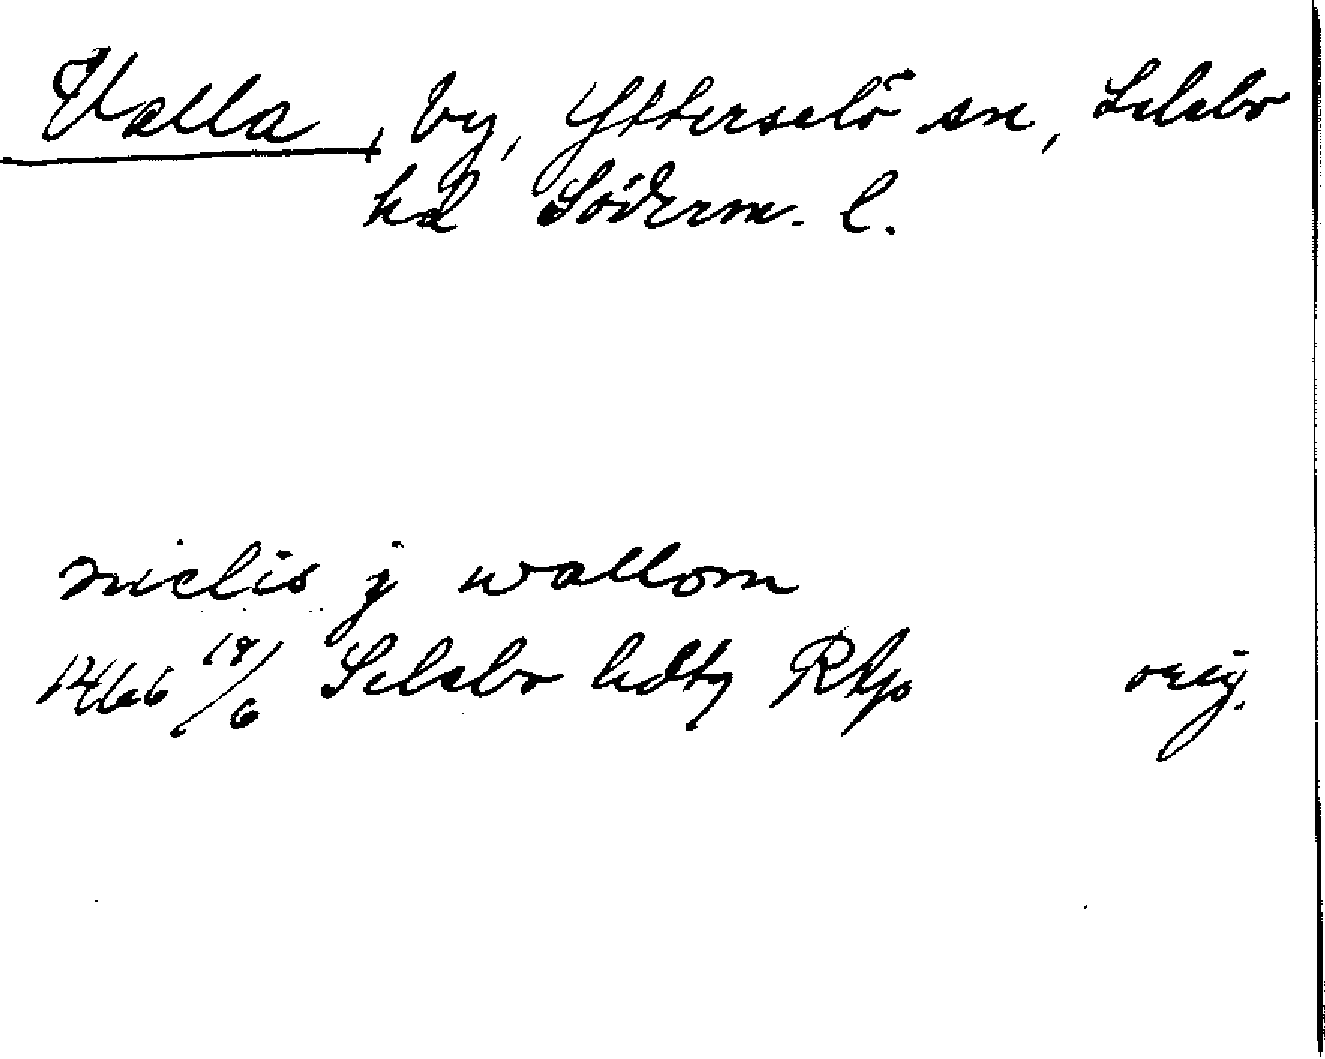 Valla, by, Ytterselö sn, Selebo
hd Söderm. l.
nielis j wallom
1466 19/6 Selebo hdtg RAp orig.